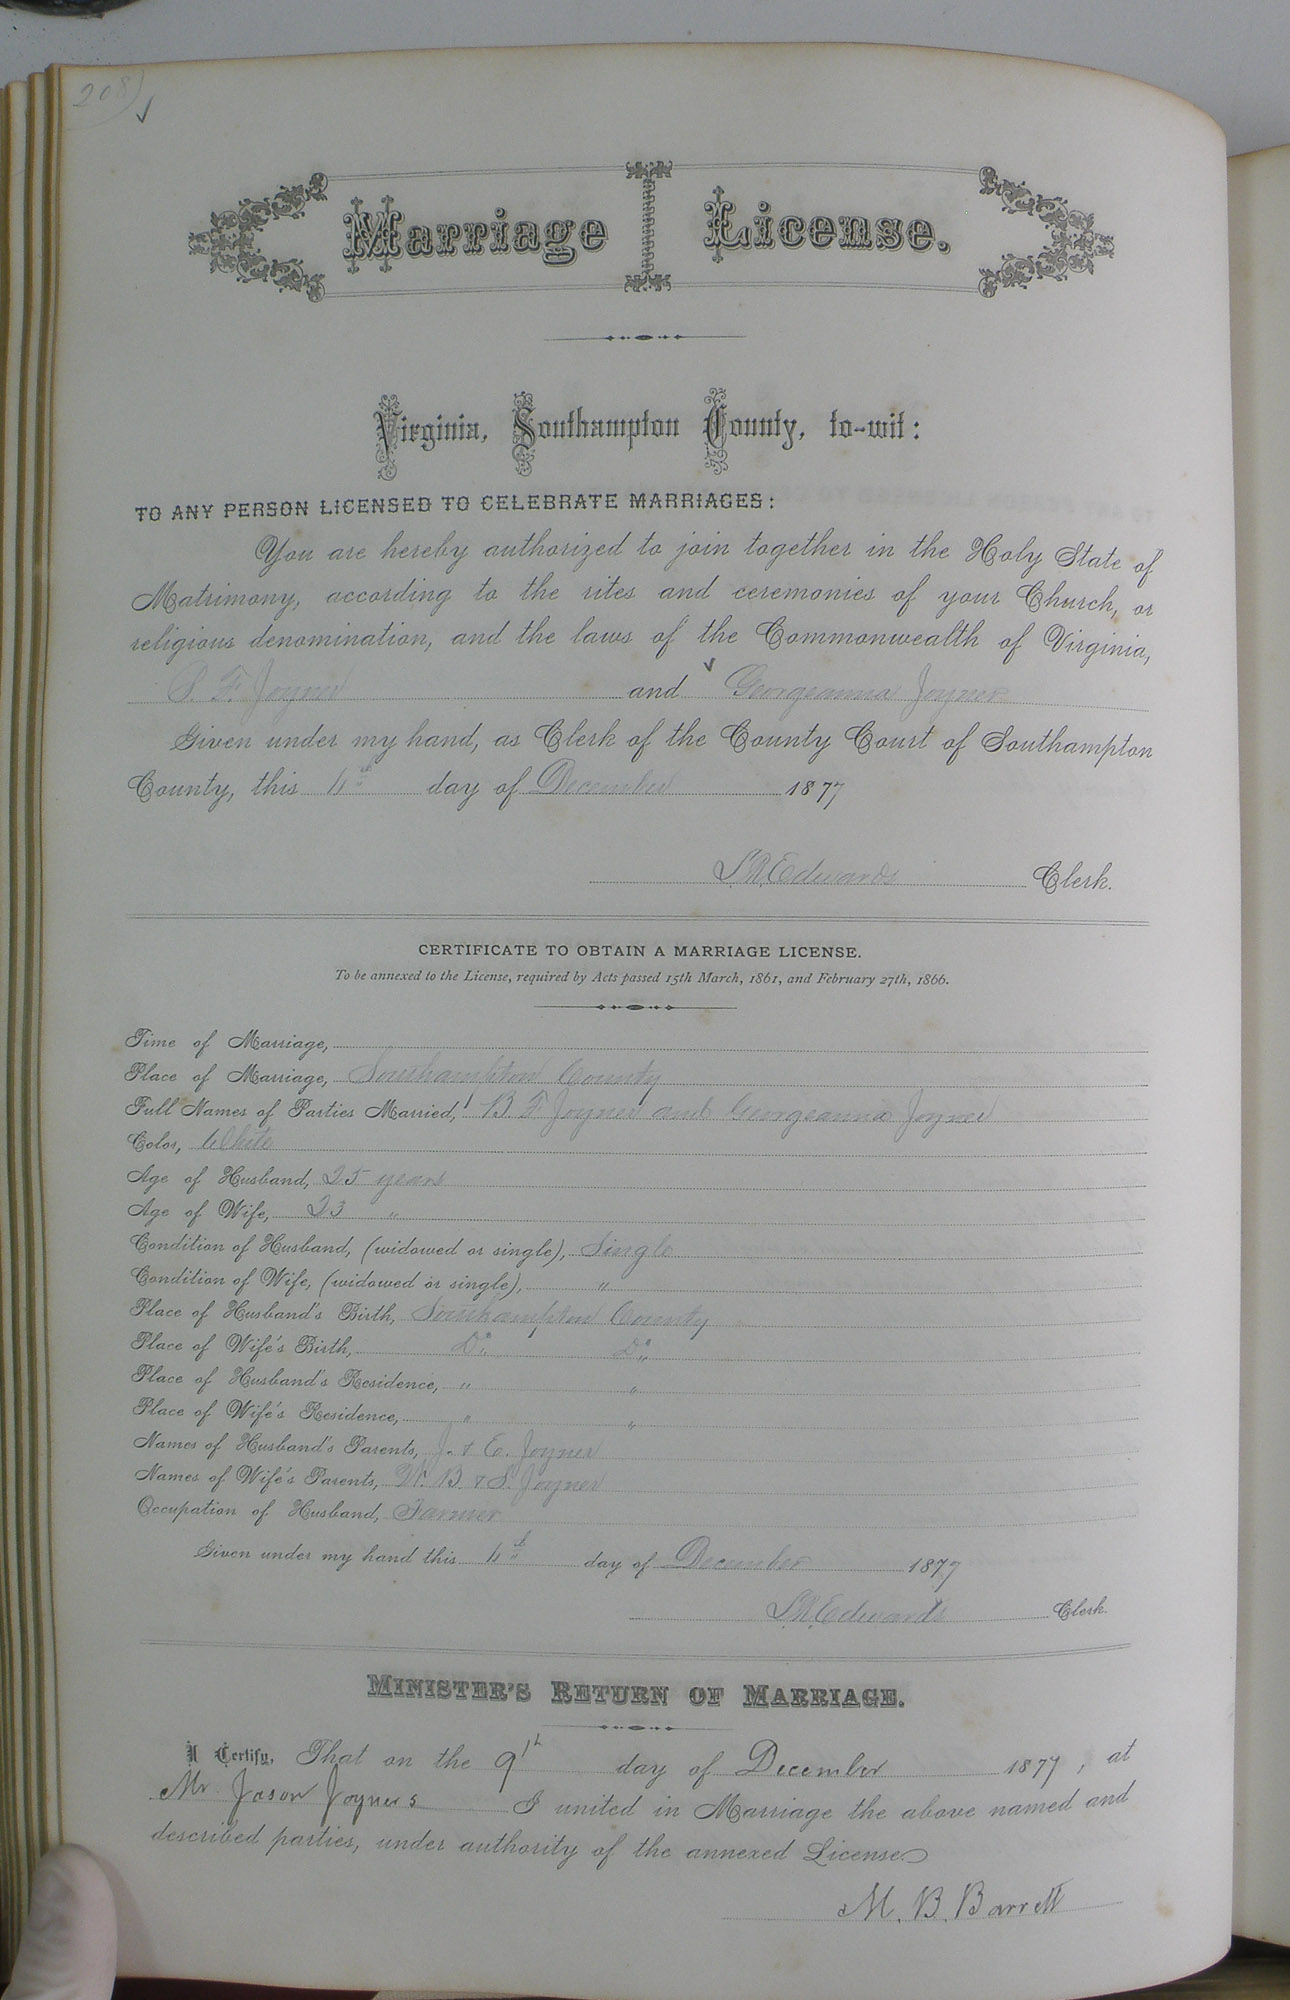 208)
Marriage License.
Virginia, Southampton County, to-wit:
TO ANY PERSON LICENSED TO CELEBRATE MARRIAGES:
You are hereby authorized to join together in the Holy State of
Matrimony, according to the rites and ceremonies of your Church, or
religious denomination, and the laws of the Commonwealth of Virginia,
F. Joyner and Georgeanna Joyner
Given under my hand, as Clerk of the County Court of Southampton
County, this day of December 1877
Edwards Clerk.
CERTIFICATE TO OBTAIN A MARRIAGE LICENSE.
To be annexed to the License, required by Acts passed 15th March, 1861, and February 27th, 1866.
Time of Marriage,
Place of Marriage, Southampton County
Full Names of Parties Married, B F Joyner and Georgeanna Joyner
Color, White
Age of Husband, 25 years
Age of Wife, 23 "
Condition of Husband, (widowed or single), Single
Condition of Wife, (widowed or single), "
Place of Husband's Birth, Southampton County
Place of Wife's Birth, Do Do
Place of Husband's Residence, " "
Place of Wife's Residence, " "
Names of Husband's Parents, J. & E. Joyner
Names of Wife's Parents, W. B & S. Joyner
Occupation of Husband, Farmer
Given under my hand this day of December 1877
Edwards Clerk.
MINISTER'S RETURN OF MARRIAGE.
I Certify, That on the 9th day of December 1877, at
Mr. Jason Joyners I united in Marriage the above named and
described parties, under authority of the annexed License
M. B. Barrett